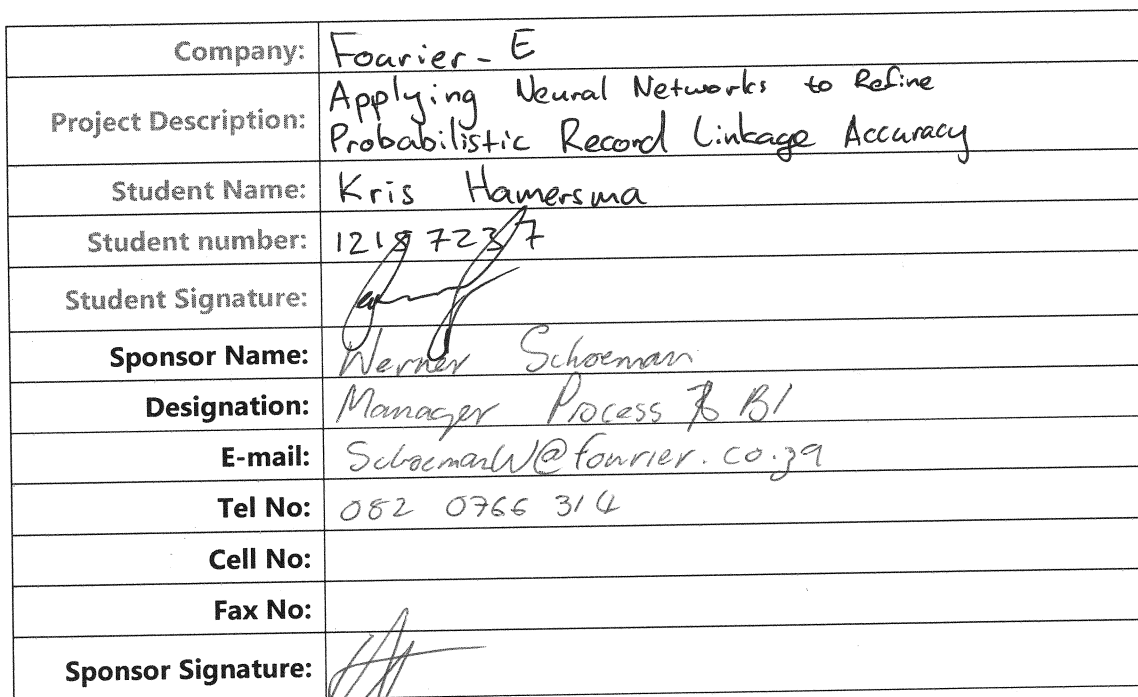 Company: Fourier-E
Project Description: Applying Neural Networks to Refine
Probabilistic Record Linkage Accuracy
Student Name: Kris Hamersma
Student number: 12187237
Student Signature:
Sponsor Name: Werner Schoeman
Designation: Manager Process & BI
E-mail: SchoemanW@fourier.co.za
Tel No: 082 0766 314
Cell No:
Fax No:
Sponsor Signature: